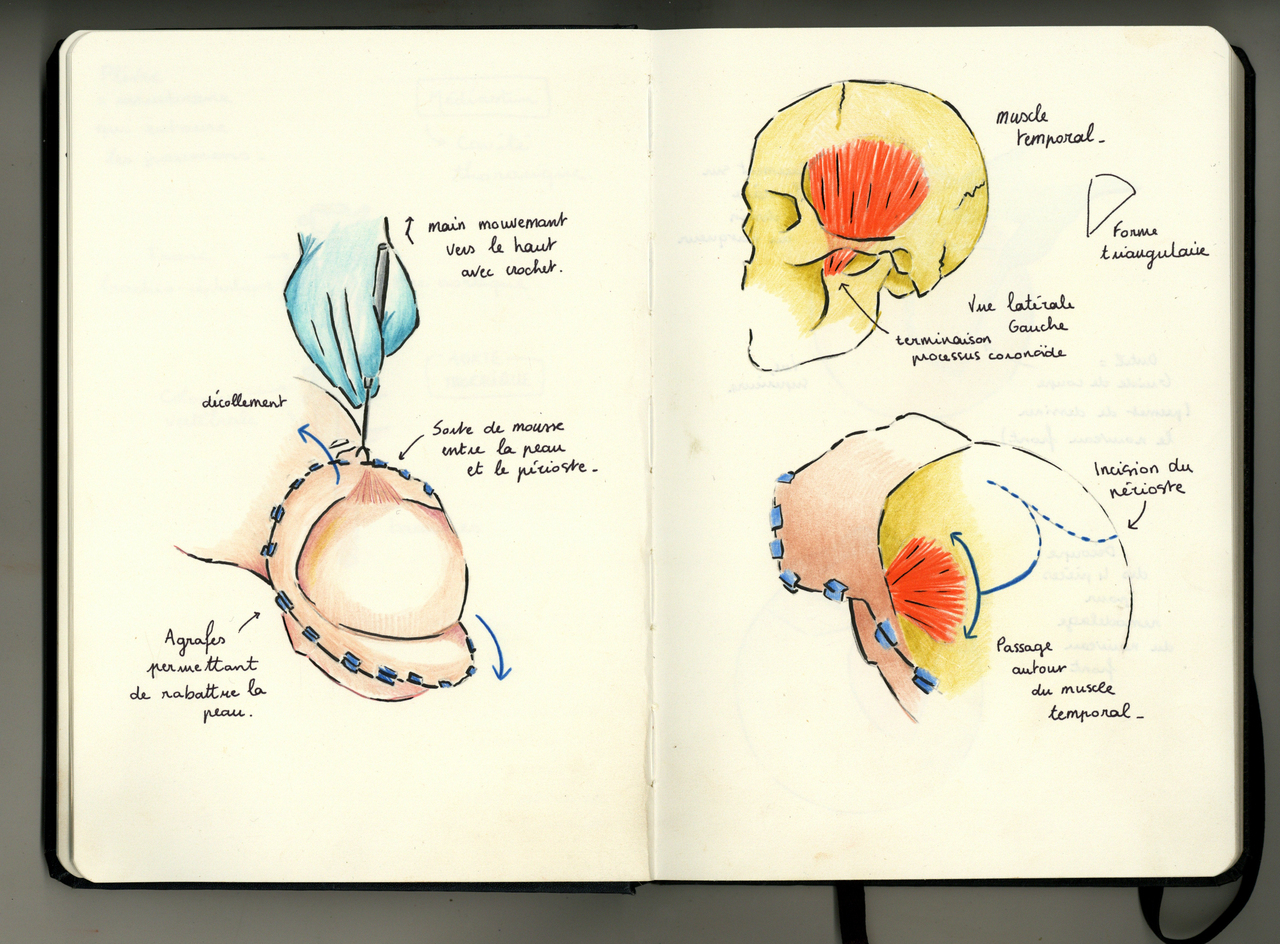 main mouvemant
vers le haut
avec crochet.
décollement
Sorte de mousse
entre la peau
et le périoste_
Agrafes
permettant
de rabattre la
peau.
muscle
temporal_
Forme
triangulaire
Vue latérale
Gauche
terminaison
processus coronoïde
Incision du
périoste
Passage
autour
du muscle
temporal_